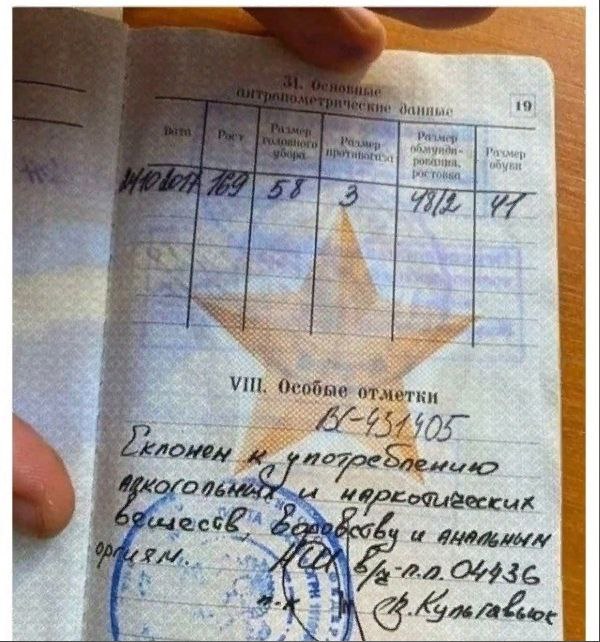 19
31. Основные
антропометрические данные
Дата Рост Размер головного убора Размер противогаза Размер обмунди- рования, ростовка Размер обуви
24.10.2017 169 58 3 48/2 41
VIII. Особые отметки
ВГ-431405
Склонен к употреблению
алкогольных и наркотических
веществ, воровству и анальным
оргиям. НШ в/ч-п.п. 04436
п-к